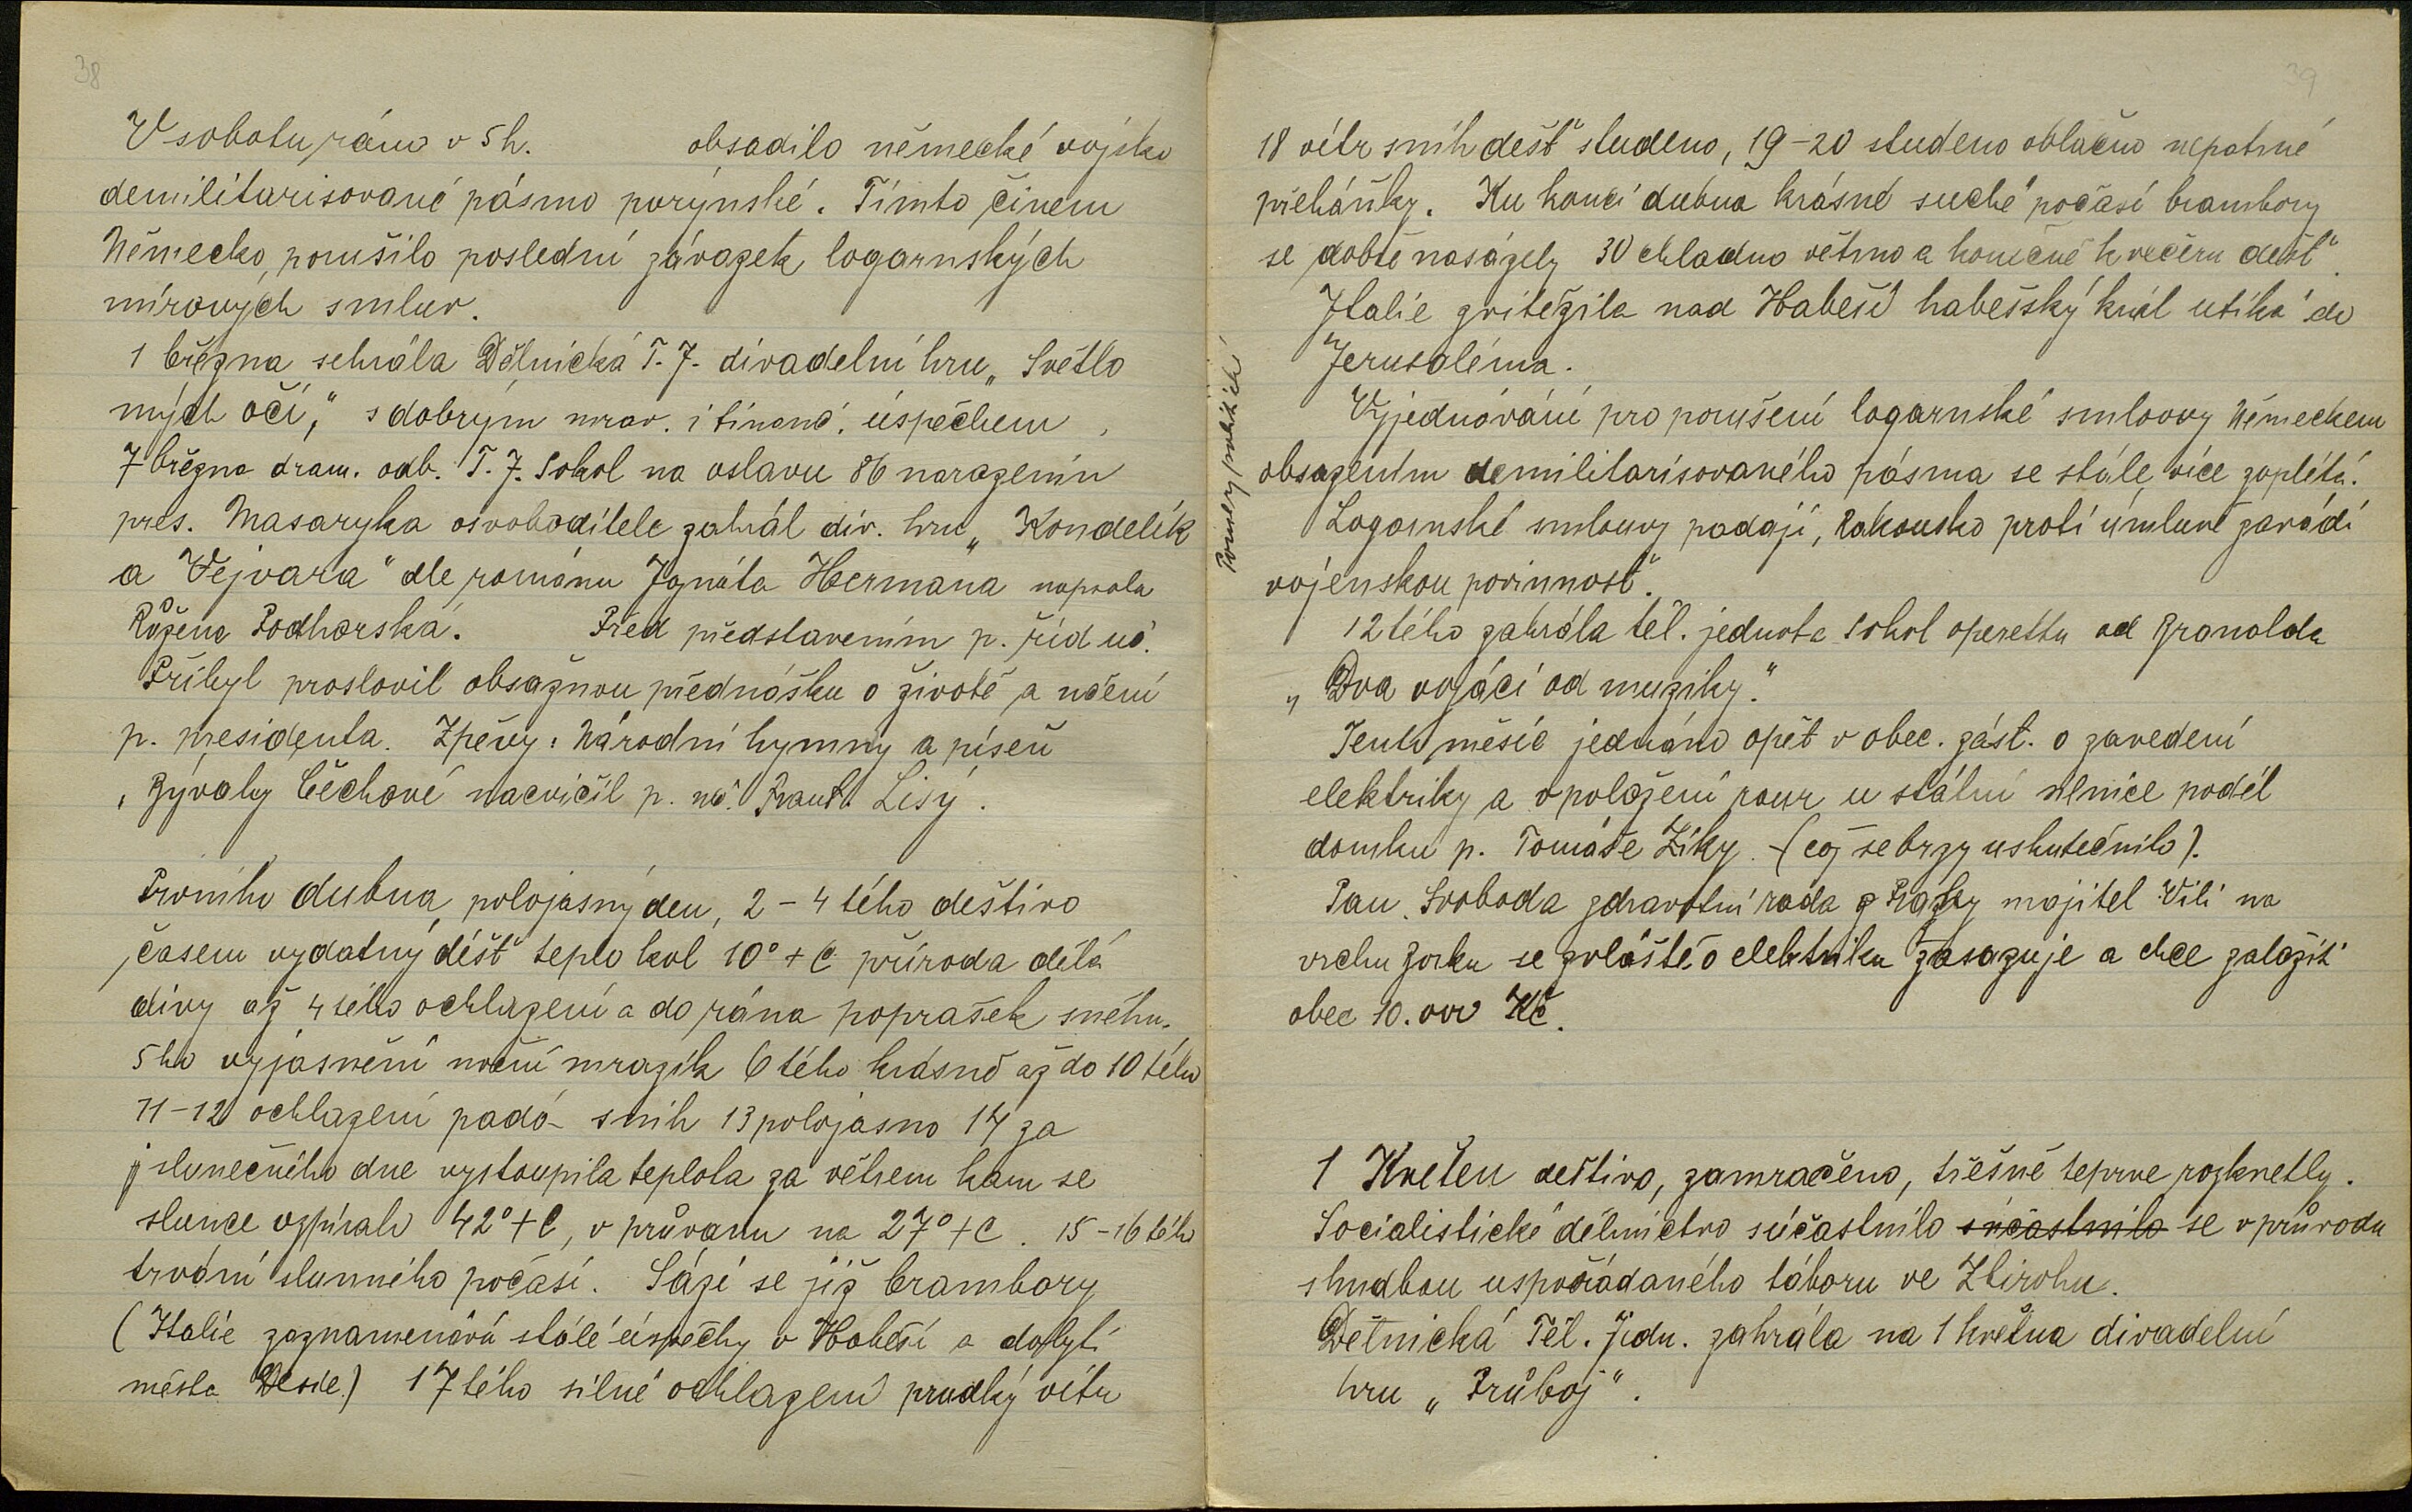 38
V sobotu ráno v 5 h. obsadilo německé vojsko
demilitarisované pásmo porýnské. Tímto činem
Německo, porušilo poslední závazek logarnských
mírových smluv.
1 března sehrála Dělnická T. J. divadelní hru „Světlo
mých očí,“ s dobrým mrav. i finanč. úspěchem,
7 března dram. odb. T. J. Sokol na oslavu 86 narazenin
pres. Masaryka osvoboditele zahrál div. hru „Kondelík
a Vejvara“ dle románu Ignáta Hermana napsala
Růžena Podhorská. Před představením p. říd uč.
Přibyl proslovil obsažnou přednášku o životě a učení
p. presidenta. Zpěvy: Národní hymny a píseň
„Bývaly Čechové nacvičil p. uč. Frant. Lisý.
Prvního dubna polojasný den, 2 – 4 tého deštivo
časem vydatný déšť teplo kol 10° + C příroda dělá
divy až 4 tého ochlazení a do rána poprašek sněhu.
5 ho vyjasnění noční mrazík 6 tého krásně až do 10 tého
11 – 12 ochlazení padá- snih 13 polojasno 14 za
slunečného dne vystoupila teplota za větrem kam se
slunce vzpíralo 42° + C, v průvanu na 27° + C. 15 – 16 tého
trvání slunného počasí. Sází se již brambory
(Italie zaznamenává stálé úspěchy v Habeši a dobytí
města Desie.) 17 tého silné ochlazení prudký vítr
39
18 vítr snih dešť studeno, 19 – 20 studeno oblačno nepatrné
přeháňky. Ku konci dubna krásné suché počasí brambory
se dobře nasázely 30 chladno větrno a konečně k večeru dešť.
Italie zvítězila nad Habeší habešský král utíká do
Jerusaléma.
Poměry politické
Vyjednávání pro porušení logarnské smlouvy Německem
obsazením demilitarisovaného pásma se stále více zaplétá.
Logarnské smlouvy padají, Rakousko proti úmluvě zavádí
vojenskou povinnosť.
12 tého zahrála těl. jednota Sokol operettu od Branalda
„Dva vojáci od muziky.“
Tento měsíc jednáno opět v obec. zást. o zavedení
elektriky a o položení rour u státní silnice podél
domku p. Tomáše Ziky. (což se brzy uskutečnilo).
Pan Svoboda zdravotní rada z Prahy majitel Vili na
vrchu Jorku se zvláště o elektriku zasazuje a chce založiti
obec 10.000 Kč.
1 Květen deštivo, zamračeno, třešně teprve rozkvetly.
Socialistické dělnictvo súčastnilo súčastnilo se v průvodu
s hudbou uspořádaného táboru ve Zbirohu.
Dělnická Těl. Jedn. zahrála na 1 května divadelní
hru „Průboj“.